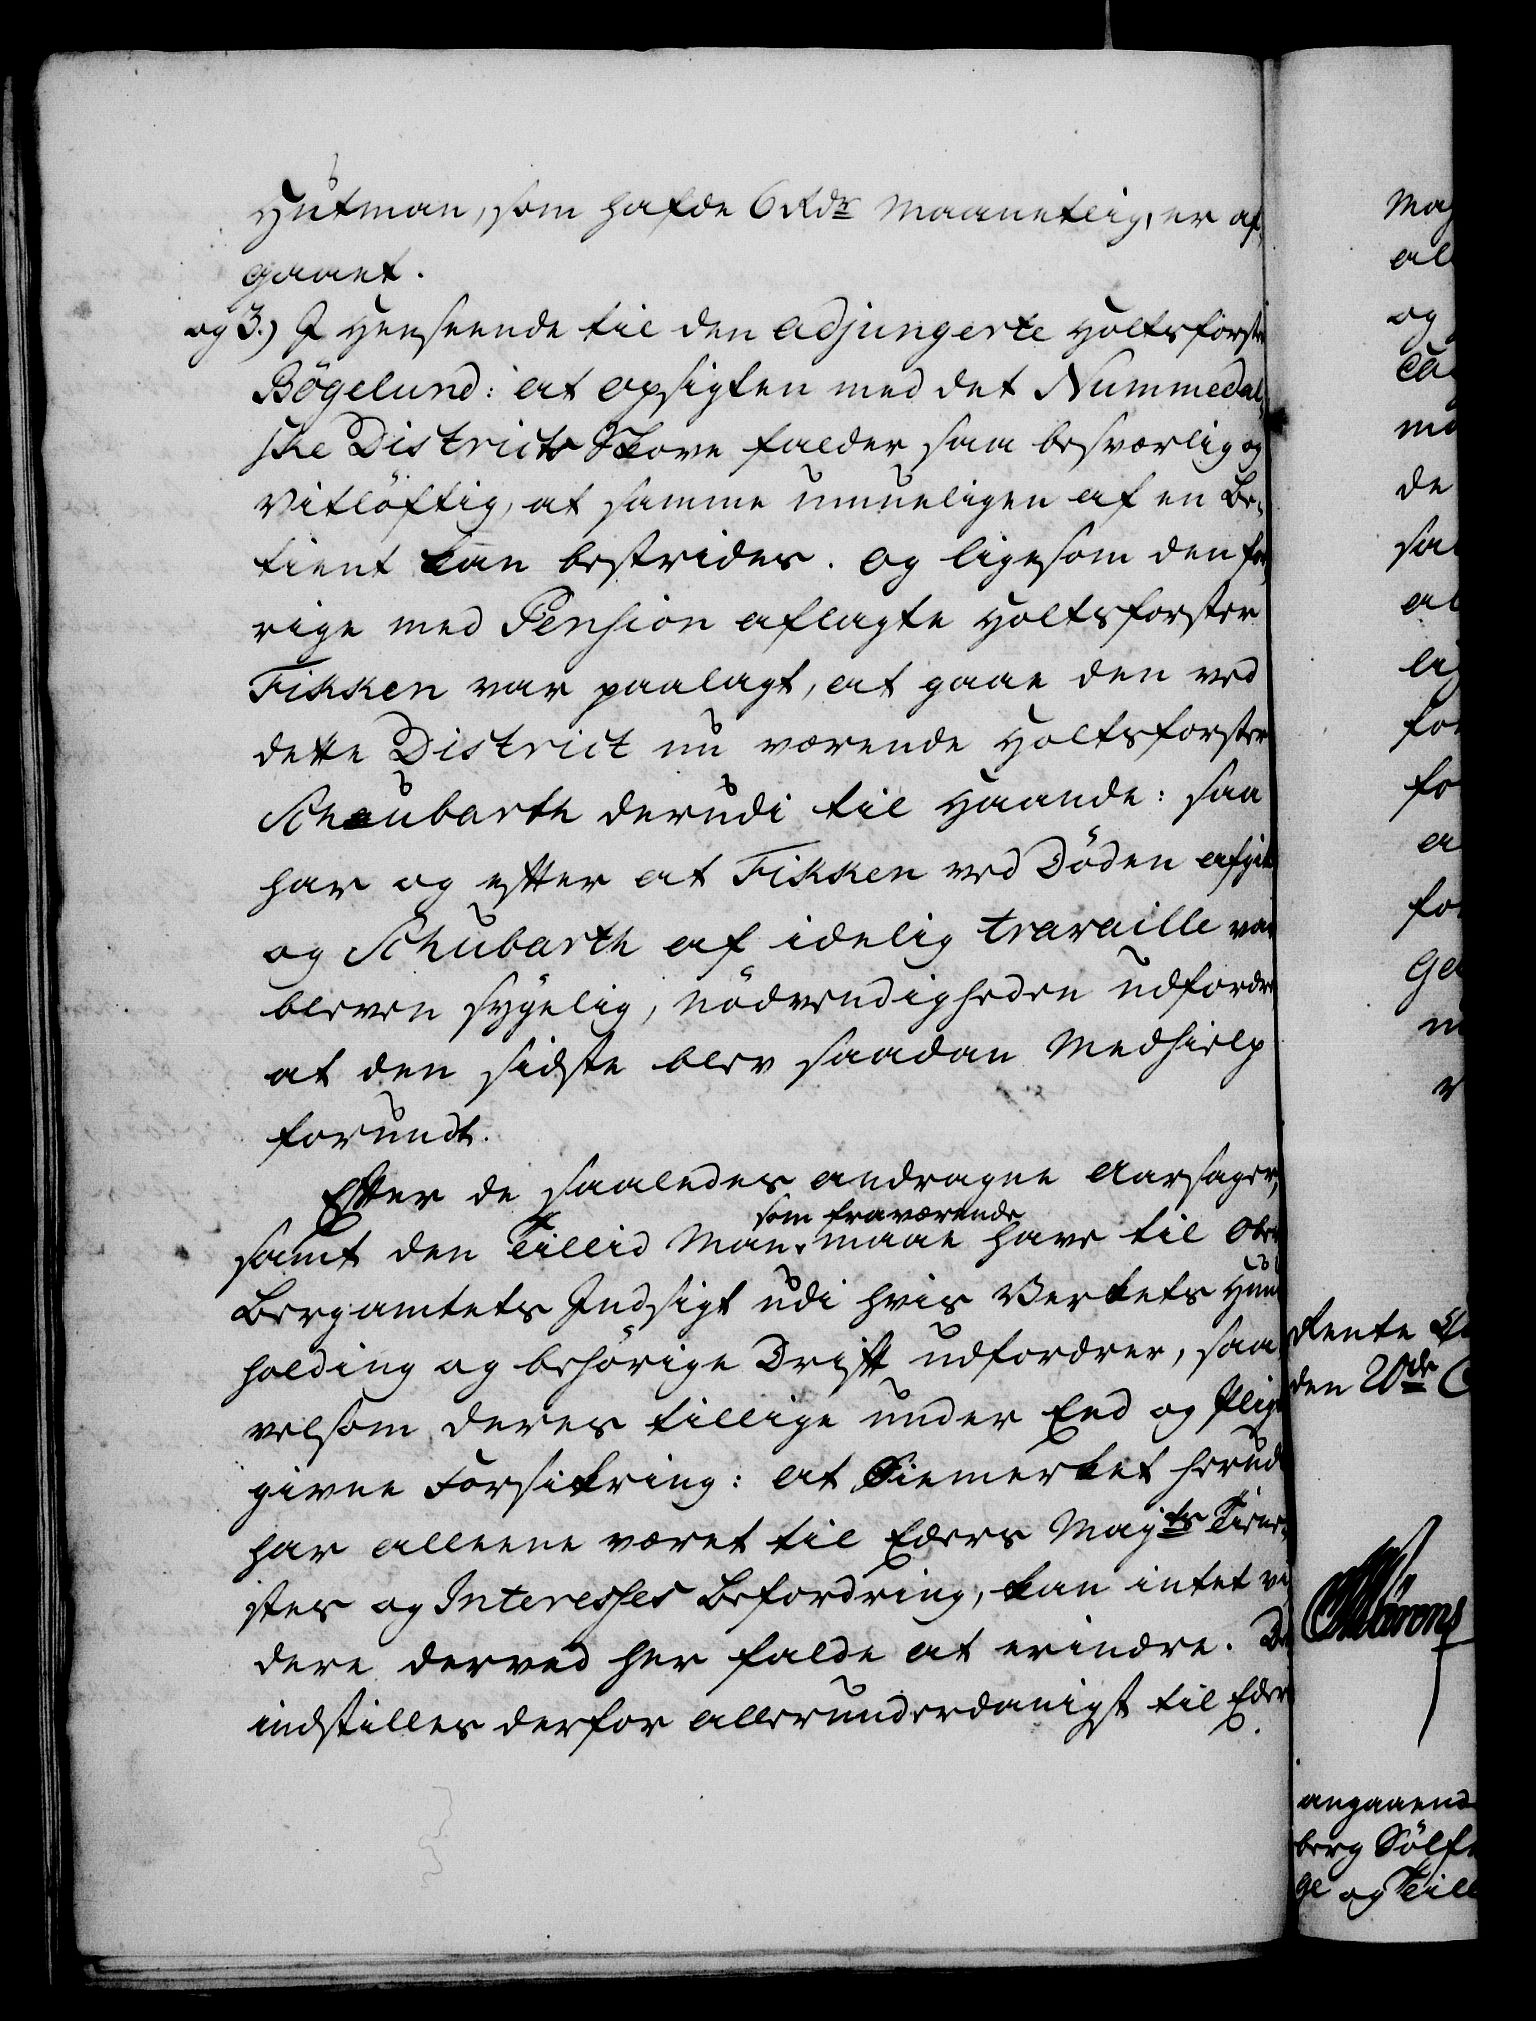 Hutman, som hafde 6 Rdr Maanetlig, er af-
gaaet.
og 3.) I Henseende til den adjungerte Holtsforster
Bögelund: at opsigten med det Nummedal-
ske Districts Skove falder saa besværlig og
Vitlöftig, at samme umueligen af en Be-
tient kan bestrides. og ligesom den for
rige med Pension aflagte Holtsforster
Fikken var paalagt, at gaae den ved
dette District nu værende Holtsforster
Schubarth derudi til Haande: saa
har og efter at Fikken ved Döden afgik
og Schubarth af idelig travaille var
bleven sygelig, Nödvendigheden udfordret
at den sidste blev saadan Medhielp
forundt.
Efter de saaledes andragne Aarsager,
som fraværende
samt den Tillid Man maae have til Ober
Bergamtets Indsigt udi hvis Verkets Huus
holding og behörige Drift udfordrer, saa
velsom deres tillige under Eed og Pligt
givne Forsikring: at Öiemerket herudi
har alleene været til Eders Majts Tiene-
stes og Interesses Befordring, kan intet vi
dere derved her falde at erindre. De
indstilles derfor allerunderdanigst til Eders
Rente
den 20de
angaaende
berg Sölf
ge og Till